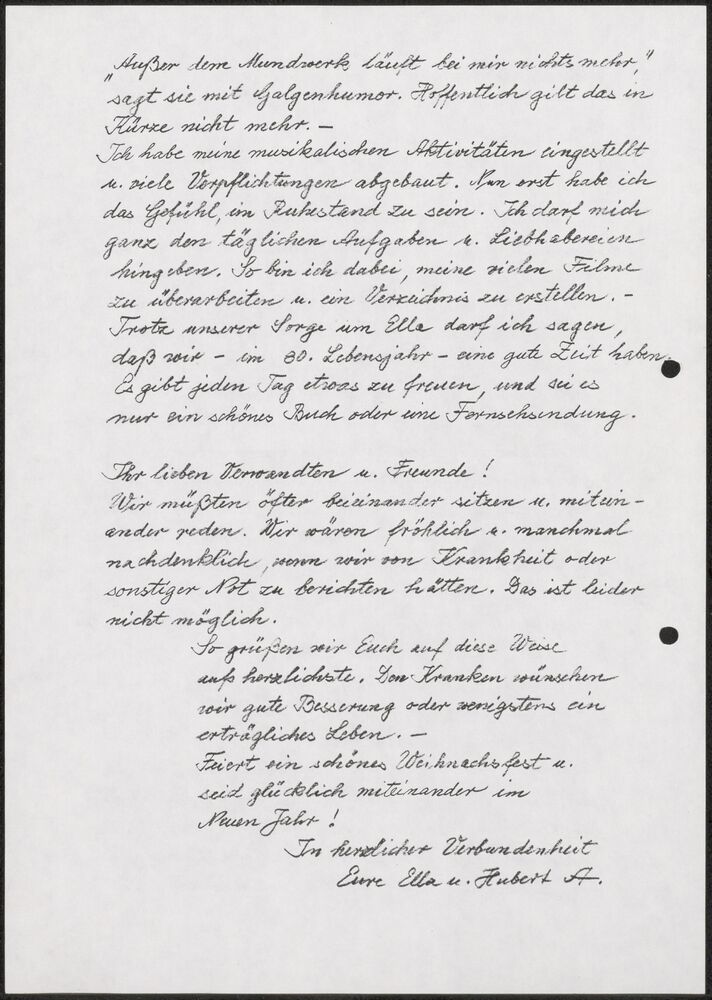 „Außer dem Mundwerk läuft bei mir nichts mehr,"
sagt sie mit Galgenhumor. Hoffentlich gilt das in
Kürze nicht mehr. –
Ich habe meine musikalischen Aktivitäten eingestellt
u. viele Verpflichtungen abgebaut. Nun erst habe ich
das Gefühl, im Ruhestand zu sein. Ich darf mich
ganz den täglichen Aufgaben u. Liebhabereien
hingeben. So bin ich dabei, meine vielen Filme
zu überarbeiten u. ein Verzeichnis zu erstellen. –
Trotz unserer Sorge um Ella darf ich sagen,
daß wir – im 80. Lebensjahr – eine gute Zeit haben.
Es gibt jeden Tag etwas zu freuen, und sei es
nur ein schönes Buch oder eine Fernsehsendung.
Ihr lieben Verwandten u. Freunde!
Wir müßten öfter beieinander sitzen u. mitein-
ander reden. Wir wären fröhlich u. manchmal
nachdenklich, wenn wir von Krankheit oder
sonstiger Not zu berichten hätten. Das ist leider
nicht möglich.
So grüßen wir Euch auf diese Weise
aufs herzlichste. Den Kranken wünschen
wir gute Besserung oder wenigstens ein
erträgliches Leben. –
Feiert ein schönes Weihnachsfest u.
seid glücklich miteinander im
Neuen Jahr!
In herzlicher Verbundenheit
Eure Ella u. Hubert A.